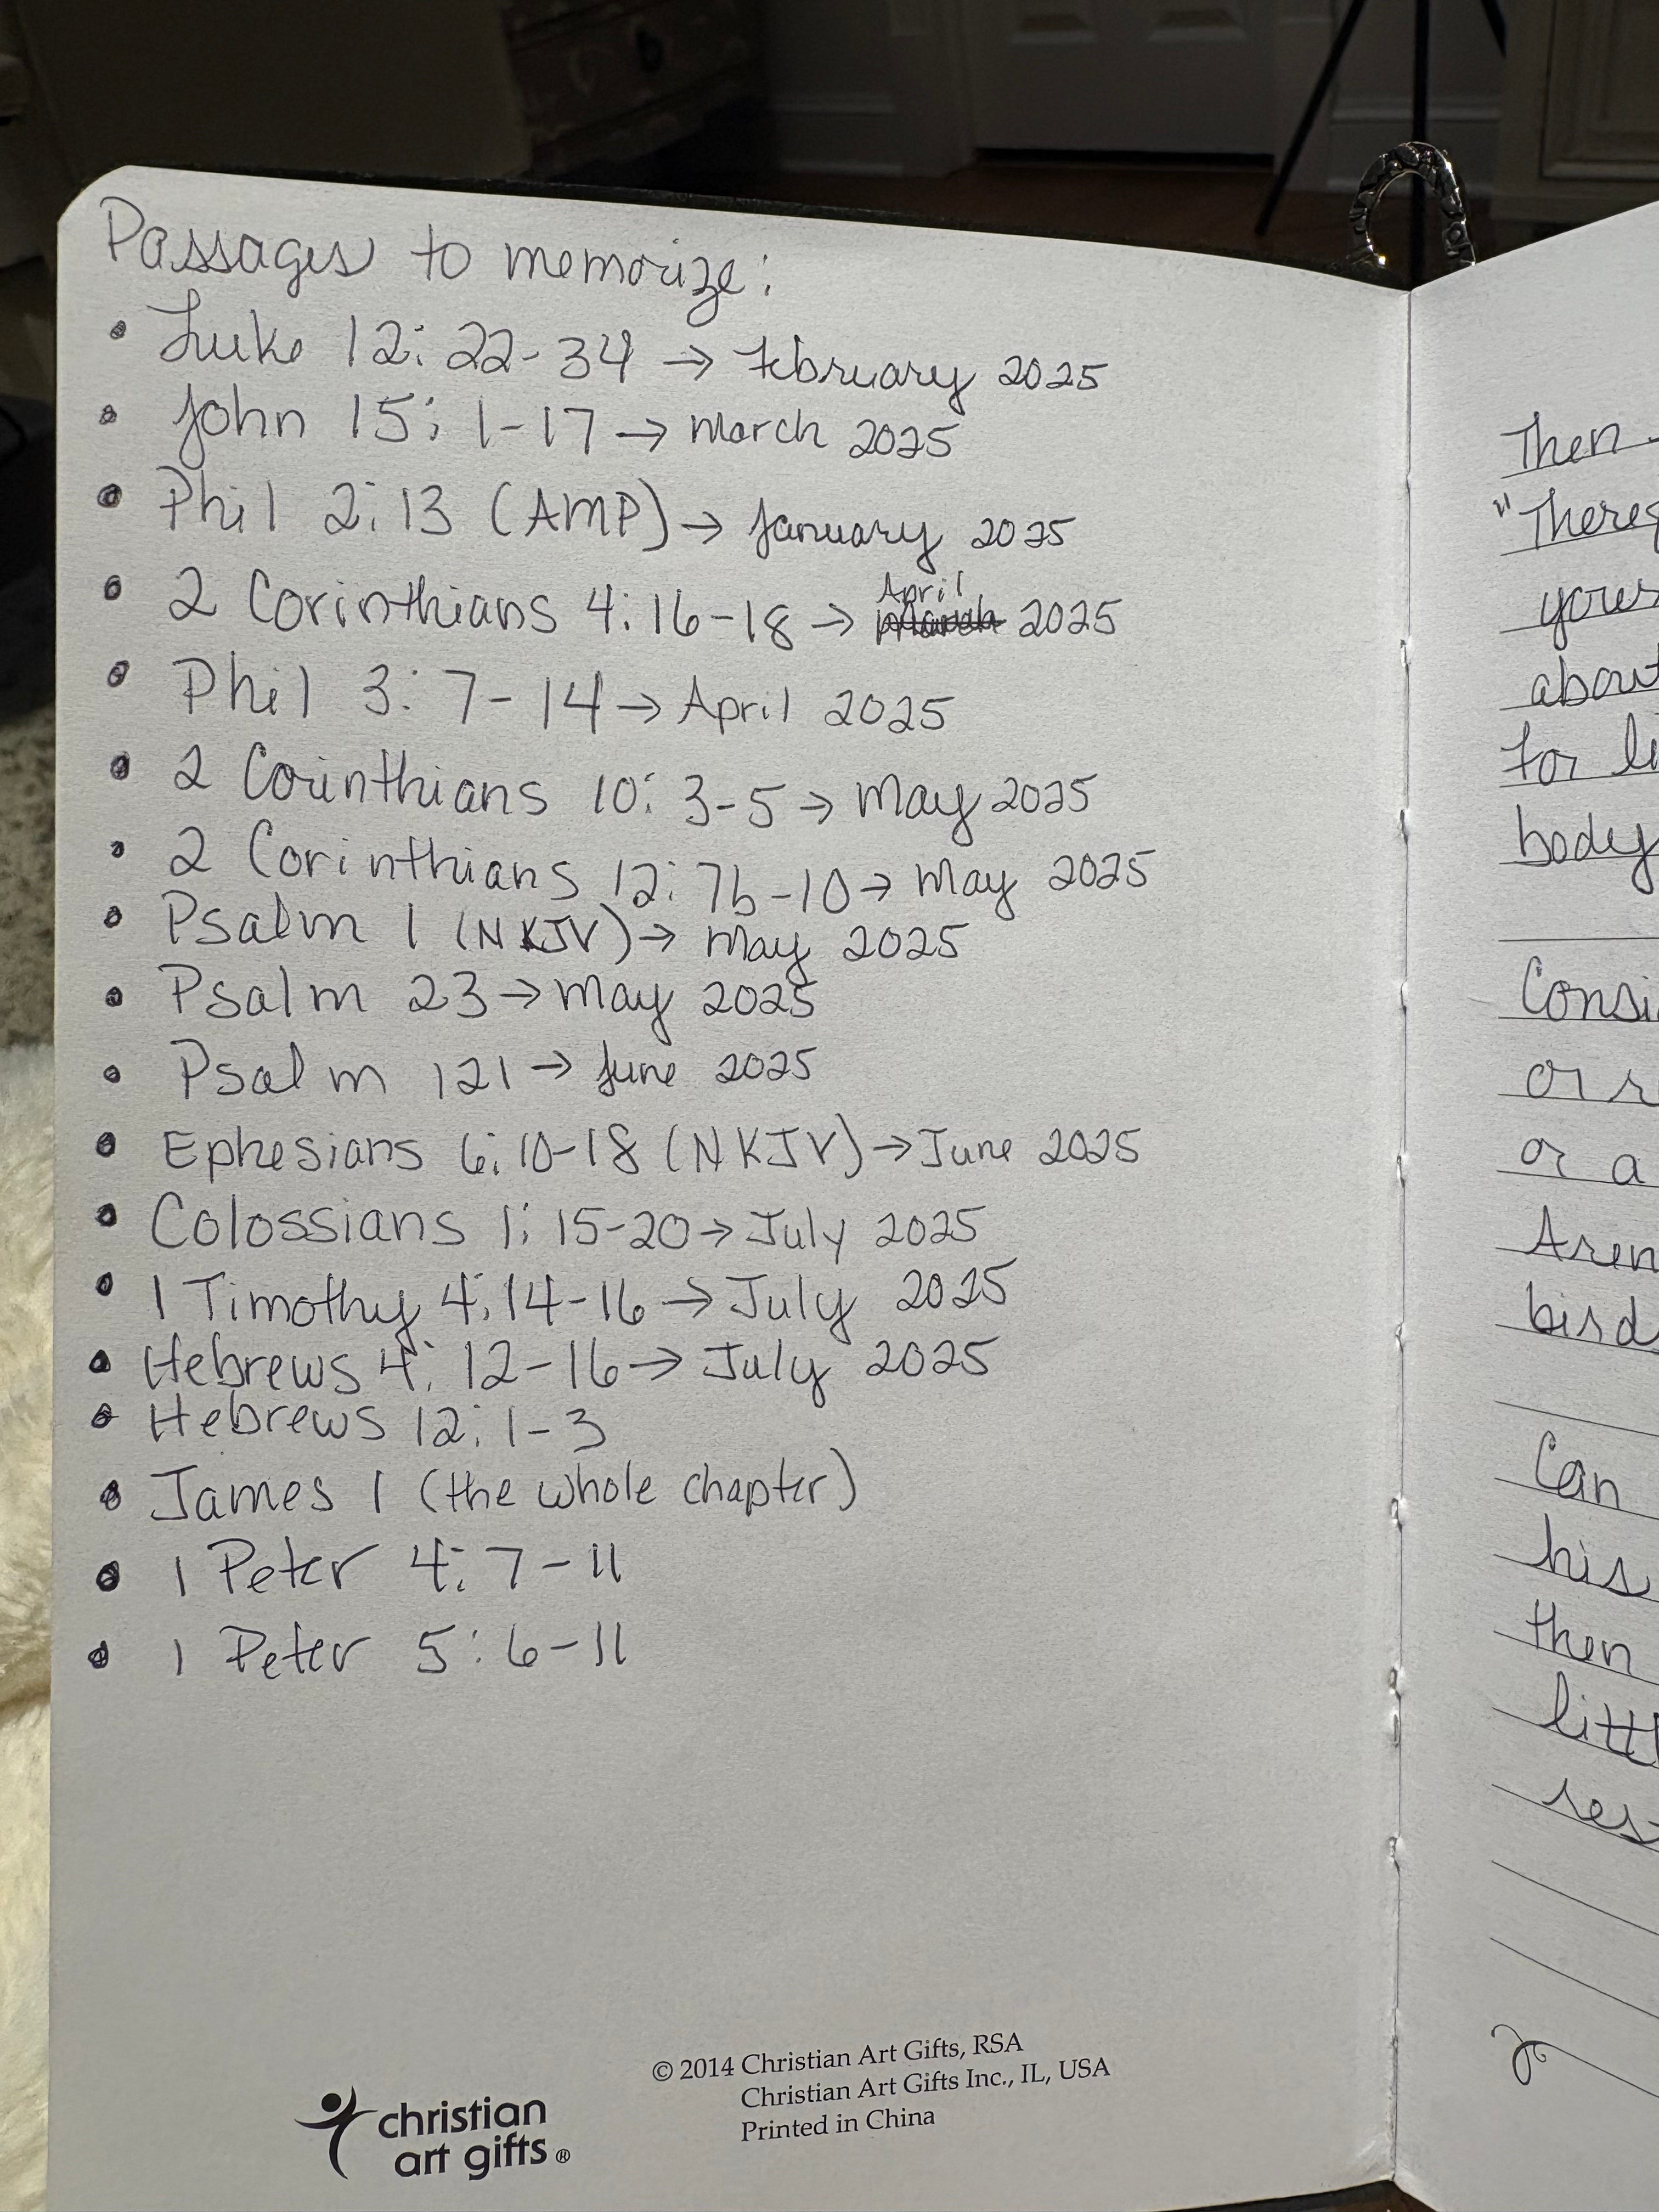 Passages to memorize:
• Luke 12: 22-34 → February 2025
• John 15: 1-17 → March 2025
• Phil 2:13 (AMP) → January 2025
• 2 Corinthians 4:16-18 → April 2025
• Phil 3: 7-14 → April 2025
• 2 Corinthians 10: 3-5 → May 2025
• 2 Corinthians 12: 7b-10 → May 2025
• Psalm 1 (NKJV) → May 2025
• Psalm 23 → May 2025
• Psalm 121 → June 2025
• Ephesians 6:10-18 (NKJV) → June 2025
• Colossians 1: 15-20 → July 2025
• 1 Timothy 4:14-16 → July 2025
• Hebrews 4: 12-16 → July 2025
• Hebrews 12: 1-3
• James 1 (the whole chapter)
• 1 Peter 4: 7-11
• 1 Peter 5: 6-11
© 2014 Christian Art Gifts, RSA
Christian Art Gifts Inc., IL, USA
Printed in China
christian
art gifts®
Then
"
about
for
body
or
or a
bird
Can
his
then